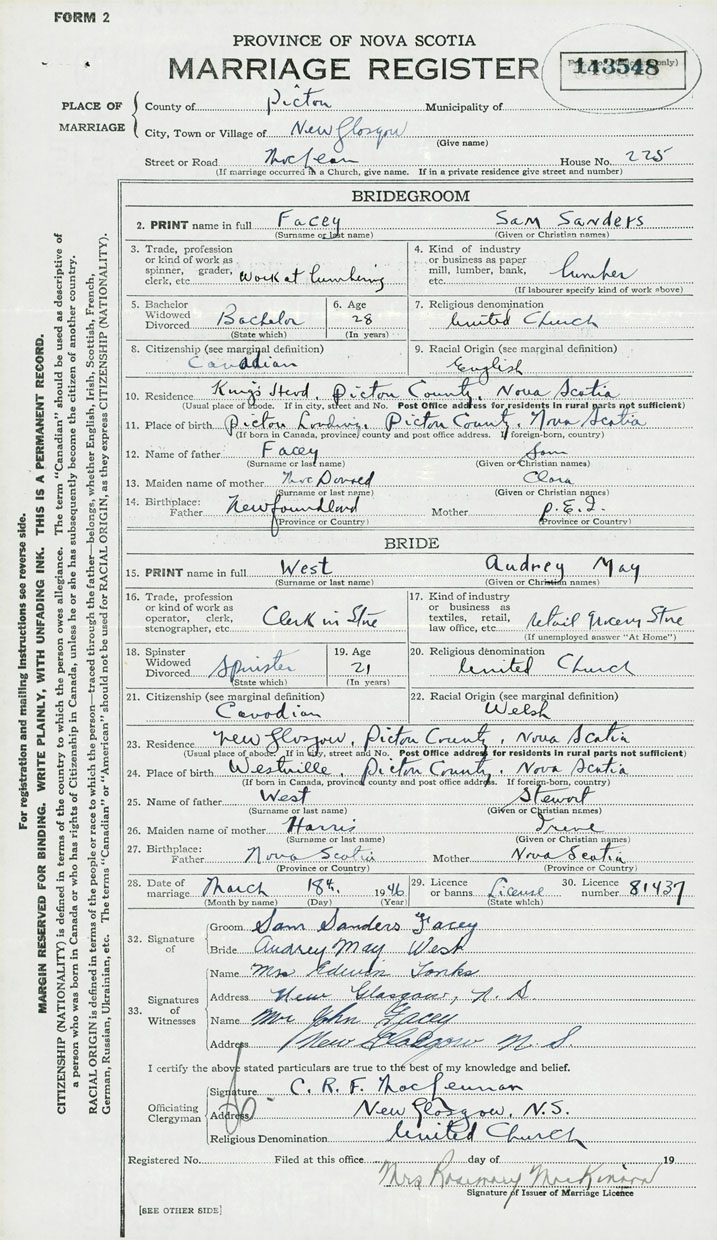 FORM 2
PROVINCE OF NOVA SCOTIA
MARRIAGE REGISTER
143548
PLACE OF MARRIAGE
County of Pictou Municipality of
City, Town or Village of New Glasgow
(Give name)
Street or Road MacLean House No. 225
(If marriage occurred in a Church, give name. If in a private residence give street and number)
BRIDEGROOM
2. PRINT name in full Facey Sam Sanders
(Surname or last name) (Given or Christian names)
3. Trade, profession or kind of work as spinner, grader, clerk, etc. Work at lumbering
4. Kind of industry or business as paper mill, lumber, bank, etc. lumber
(If labourer specify kind of work above)
5. Bachelor Widowed Divorced Bachelor
(State which)
6. Age 28
(In years)
7. Religious denomination
United Church
8. Citizenship (see marginal definition)
Canadian
9. Racial Origin (see marginal definition)
English
10. Residence King's Head, Pictou County, Nova Scotia
(Usual place of abode. If in city, street and No. Post Office address for residents in rural parts not sufficient)
11. Place of birth Pictou Landing, Pictou County, Nova Scotia
(If born in Canada, province, county and post office address. If foreign-born, country)
12. Name of father Facey Sam
(Surname or last name) (Given or Christian names)
13. Maiden name of mother MacDonald Clara
(Surname or last name) (Given or Christian names)
14. Birthplace: Father Newfoundland Mother P.E.I.
(Province or Country) (Province or Country)
BRIDE
15. PRINT name in full West Audrey May
(Surname or last name) (Given or Christian names)
16. Trade, profession or kind of work as operator, clerk, stenographer, etc. Clerk in Store
17. Kind of industry or business as textiles, retail, law office, etc. retail grocery Store
(If unemployed answer "At Home")
18. Spinster Widowed Divorced Spinster
(State which)
19. Age 21
(In years)
20. Religious denomination
United Church
21. Citizenship (see marginal definition)
Canadian
22. Racial Origin (see marginal definition)
Welsh
23. Residence New Glasgow, Pictou County, Nova Scotia
(Usual place of abode. If in city, street and No. Post Office address for residents in rural parts not sufficient)
24. Place of birth Westville, Pictou County, Nova Scotia
(If born in Canada, province, county and post office address. If foreign-born, country)
25. Name of father West Stewart
(Surname or last name) (Given or Christian names)
26. Maiden name of mother Harris Irene
(Surname or last name) (Given or Christian names)
27. Birthplace: Father Nova Scotia Mother Nova Scotia
(Province or Country) (Province or Country)
28. Date of marriage March 18th, 1946
(Month by name) (Day) (Year)
29. Licence or banns License
(State which)
30. Licence number 81437
32. Signature of
Groom Sam Sanders Facey
Bride Audrey May West
33. Signatures of Witnesses
Name Mrs Edwin Tonks
Address New Glasgow, N.S
Name Mr John Facey
Address New Glasgow N.S.
I certify the above stated particulars are true to the best of my knowledge and belief.
Officiating Clergyman
Signature C. R. F. MacLennan
Address New Glasgow, N.S.
Religious Denomination United Church
Registered No. Filed at this office day of 19
Mrs Rosemary MacKinnon
Signature of Issuer of Marriage Licence
[SEE OTHER SIDE]
For registration and mailing instructions see reverse side.
MARGIN RESERVED FOR BINDING. WRITE PLAINLY, WITH UNFADING INK. THIS IS A PERMANENT RECORD.
CITIZENSHIP (NATIONALITY) is defined in terms of the country to which the person owes allegiance. The term "Canadian" should be used as descriptive of
a person who was born in Canada or who has rights of Citizenship in Canada, unless he or she has subsequently become the citizen of another country.
RACIAL ORIGIN is defined in terms of the people or race to which the person—traced through the father—belongs, whether English, Irish, Scottish, French,
German, Russian, Ukrainian, etc. The terms "Canadian" or "American" should not be used for RACIAL ORIGIN, as they express CITIZENSHIP (NATIONALITY).